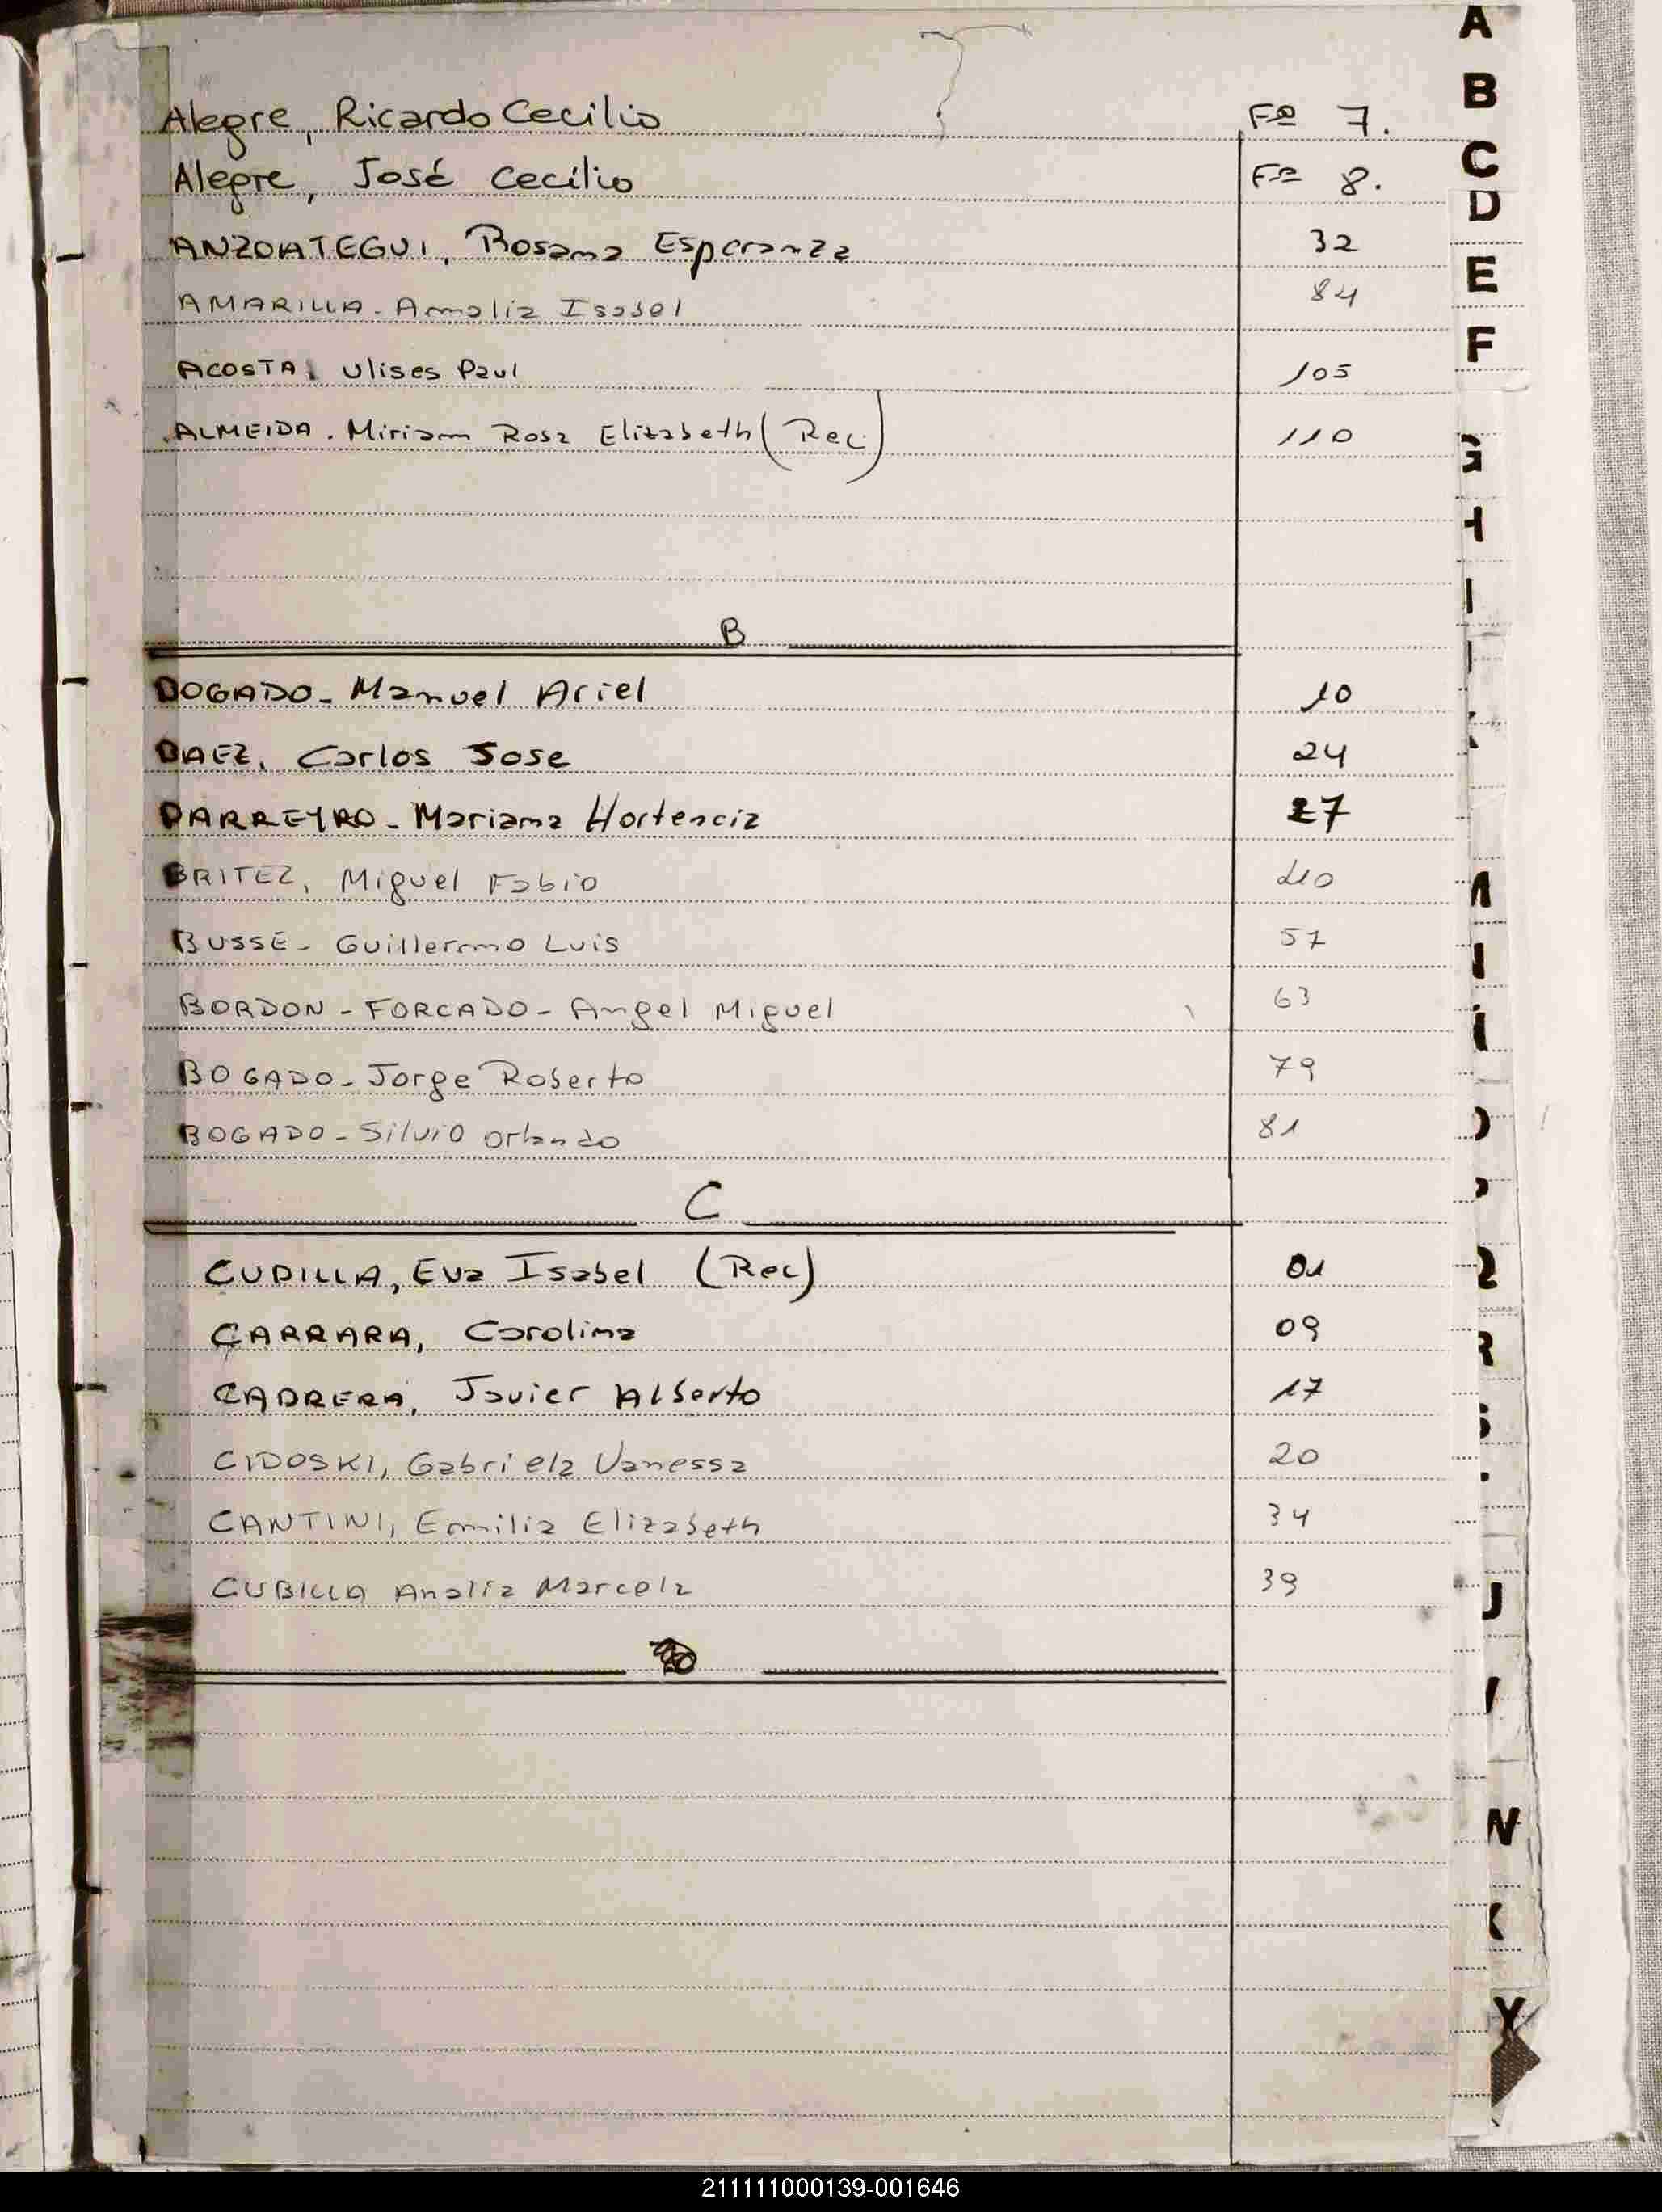 A
Alegre, Ricardo Cecilio Fº 7.
B
Alegre, José Cecilio Fº 8.
C
D
ANZOATEGUI, Rosana Esperanza 32
E
AMARILLA - Amalia Isabel 84
F
ACOSTA, Ulises Paul 105
ALMEIDA. Miriam Rosa Elizabeth (Rec) 110
G
H
I
B
BOGADO - Manuel Ariel 10
BAEZ, Carlos Jose 24
BARREYRO - Mariana Hortencia 27
BRITEZ, Miguel Fabio 40
BUSSE - Guillermo Luis 57
BORDON - FORCADO - Angel Miguel 63
BOGADO - Jorge Roberto 79
BOGADO - Silvio Orlando 81
C
CUBILLA, Eva Isabel (Rec) 01
CARRARA, Carolina 09
R
CABRERA, Javier Alberto 17
CIBOSKI, Gabriela Vanessa 20
CANTINI, Emilia Elizabeth 34
CUBILLA Analia Marcela 39
N
Y
211111000139-001646